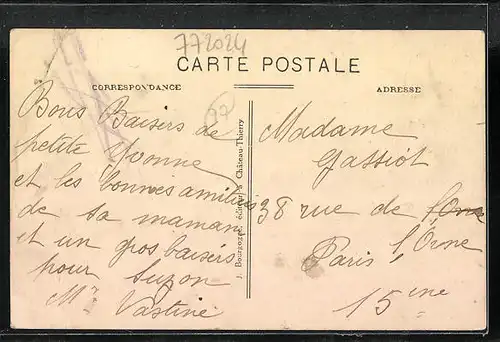 772024
CARTE POSTALE
CORRESPONDANCE
ADRESSE
Bons Baisers de
petite Yvonne
et les bonnes amitiés
de sa maman
et un gros baisers
pour Suzon
Mme Vastine
J. Bourgogne, éditeur à Château-Thierry
Madame
Gassiot
38 rue de
l'Orne
Paris
15 ème